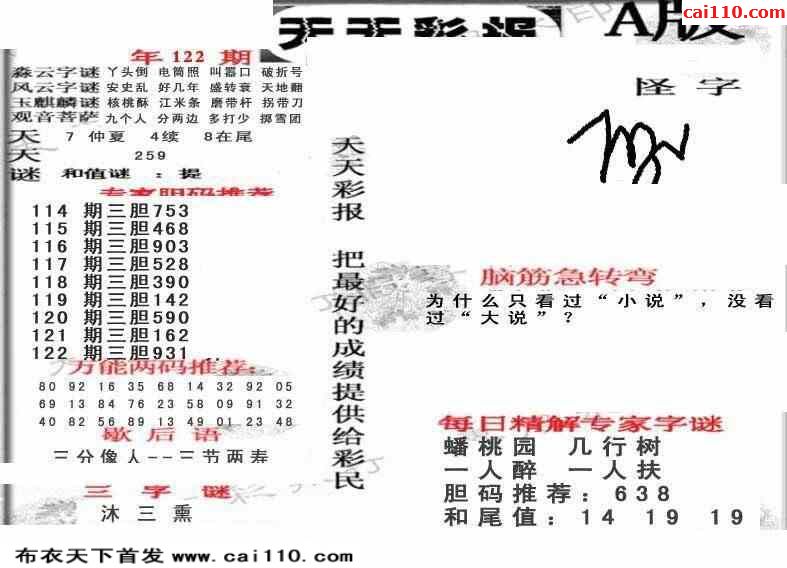 天天彩报 A版
cai110.com
年 122 期
淼云字谜 丫头倒 电筒照 叫器口 破折号
风云字谜 安史乱 好几年 盛转衰 天地翻
玉麒麟谜 核桃酥 江米条 磨带杆 拐带刀
观音菩萨 九个人 分两边 多打少 掷雪团
天 7 仲夏 4续 8在尾
天 259
谜 和值谜 : 提
专家胆码推荐
114 期三胆753
115 期三胆468
116 期三胆903
117 期三胆528
118 期三胆390
119 期三胆142
120 期三胆590
121 期三胆162
122 期三胆931 ..
万能两码推荐:
80 92 16 35 68 14 32 92 05
69 13 84 76 23 58 09 91 32
40 82 56 89 13 49 01 23 48
歇后语
三分像人--三节两寿
三字谜
沐三熏
天天彩报 把最好的成绩提供给彩民
怪字
脑筋急转弯
为什么只看过“小说”，没看
过“大说”？
每日精解专家字谜
蟠桃园 几行树
一人醉 一人扶
胆码推荐: 638
和尾值: 14 19 19
布衣天下首发 www.cai110.com